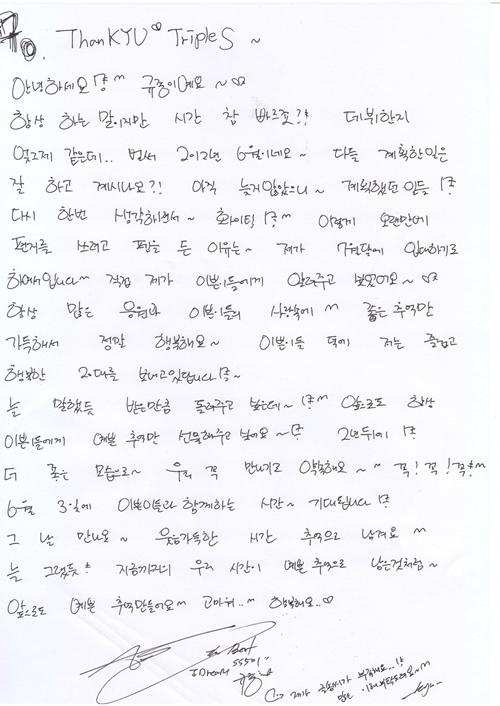 To. ThanKYU♡ TripleS ~
안녕하세요!? ^^ 규종이예요 ~♡
항상 하는 말이지만 시간 참 빠르죠?! 데뷔한지
엊그제 같은데.. 벌써 2012년 6월이네요~ 다들 계획한일은
잘 하고 계시나요?! 아직 늦지않았으니~ 계획했던 일들
다시 한번 생각하면서~ 화이팅!? ^^ 이렇게 오랜만에
편지를 쓰려고 펜을 든 이유는~ 제가 7월달에 입대하기로
해서입니다^^ 직접 제가 이쁜이들에게 알려주고 싶었어요~♡
항상 많은 응원과 이쁜이들의 사랑속에^^ 좋은 추억만
가득해서 정말 행복해요~ 이쁜이들 덕에 저는 즐겁고
행복한 20대를 보내고있답니다!?~
늘 말했듯 받은만큼 돌려주고 싶은데~!?^^ 앞으로도 항상
이쁜이들에게 예쁜 추억만 선물해주고 싶어요~!? 2년뒤에!?
더 좋은 모습으로~ 우리 꼭 만나기로 약속해요~^^ 꼭!꼭!꼭!^^
6월 3일에 이쁜이들과 함께하는 시간~ 기대됩니다!?
그 날 만나요~ 웃음가득한 시간 추억으로 남겨요^^
늘 그랬듯!? 지금까지의 우리 시간이 예쁜 추억으로 남은것처럼~
앞으로도 예쁜 추억만들어요^^ 고마워..^^ 행복해요..♡
I Dream
SS501
규종
제가 글솜씨가 부족해요..!?
많은 이해부탁드려요..^^